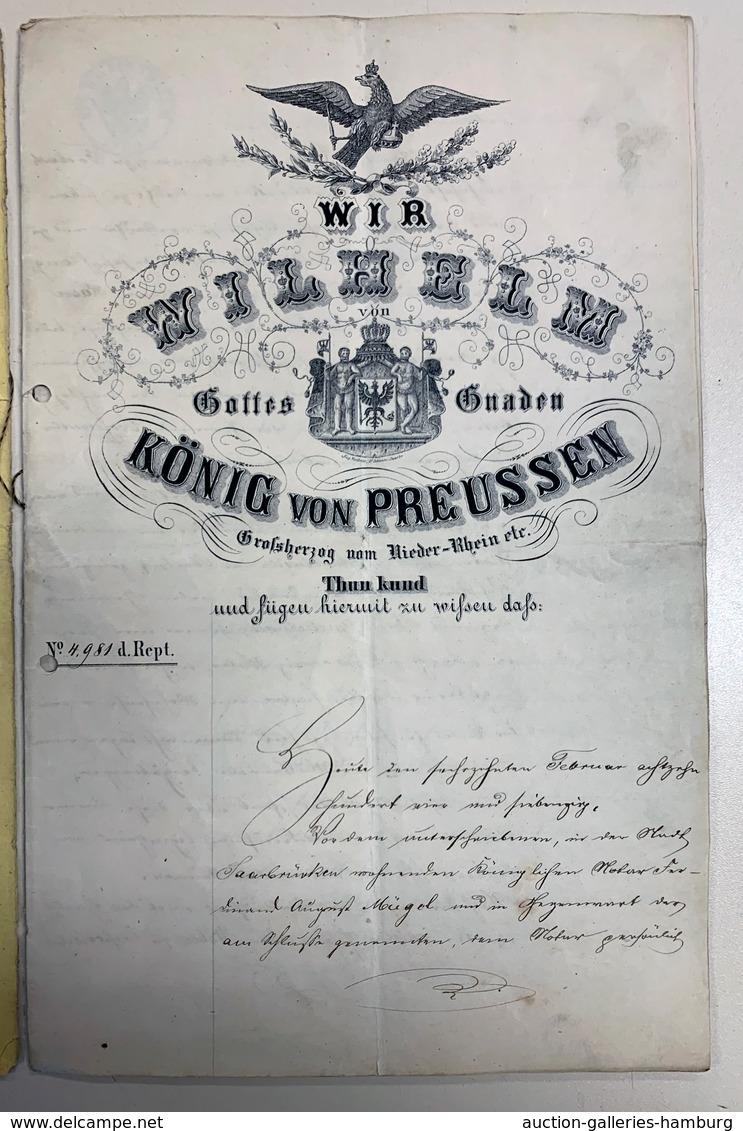 WIR
WILHELM
von
Gottes Gnaden
KÖNIG VON PREUSSEN
Grofsherzog vom Nieder-Rhein etc.
Thun kund
und fügen hiermit zu wifsen dafs:
No 4,981 d. Rept.
Heute den sechszehnten Februar achtzehn
hundert vier und siebenzig,
Vor dem unterschriebenen, in der Stadt
Saarbrücken wohnenden Königlichen Notar Fer-
dinand August Mügel und in Gegenwart der
am Schlusse genannten, dem Notar persönlich
auction-galleries-hamburg